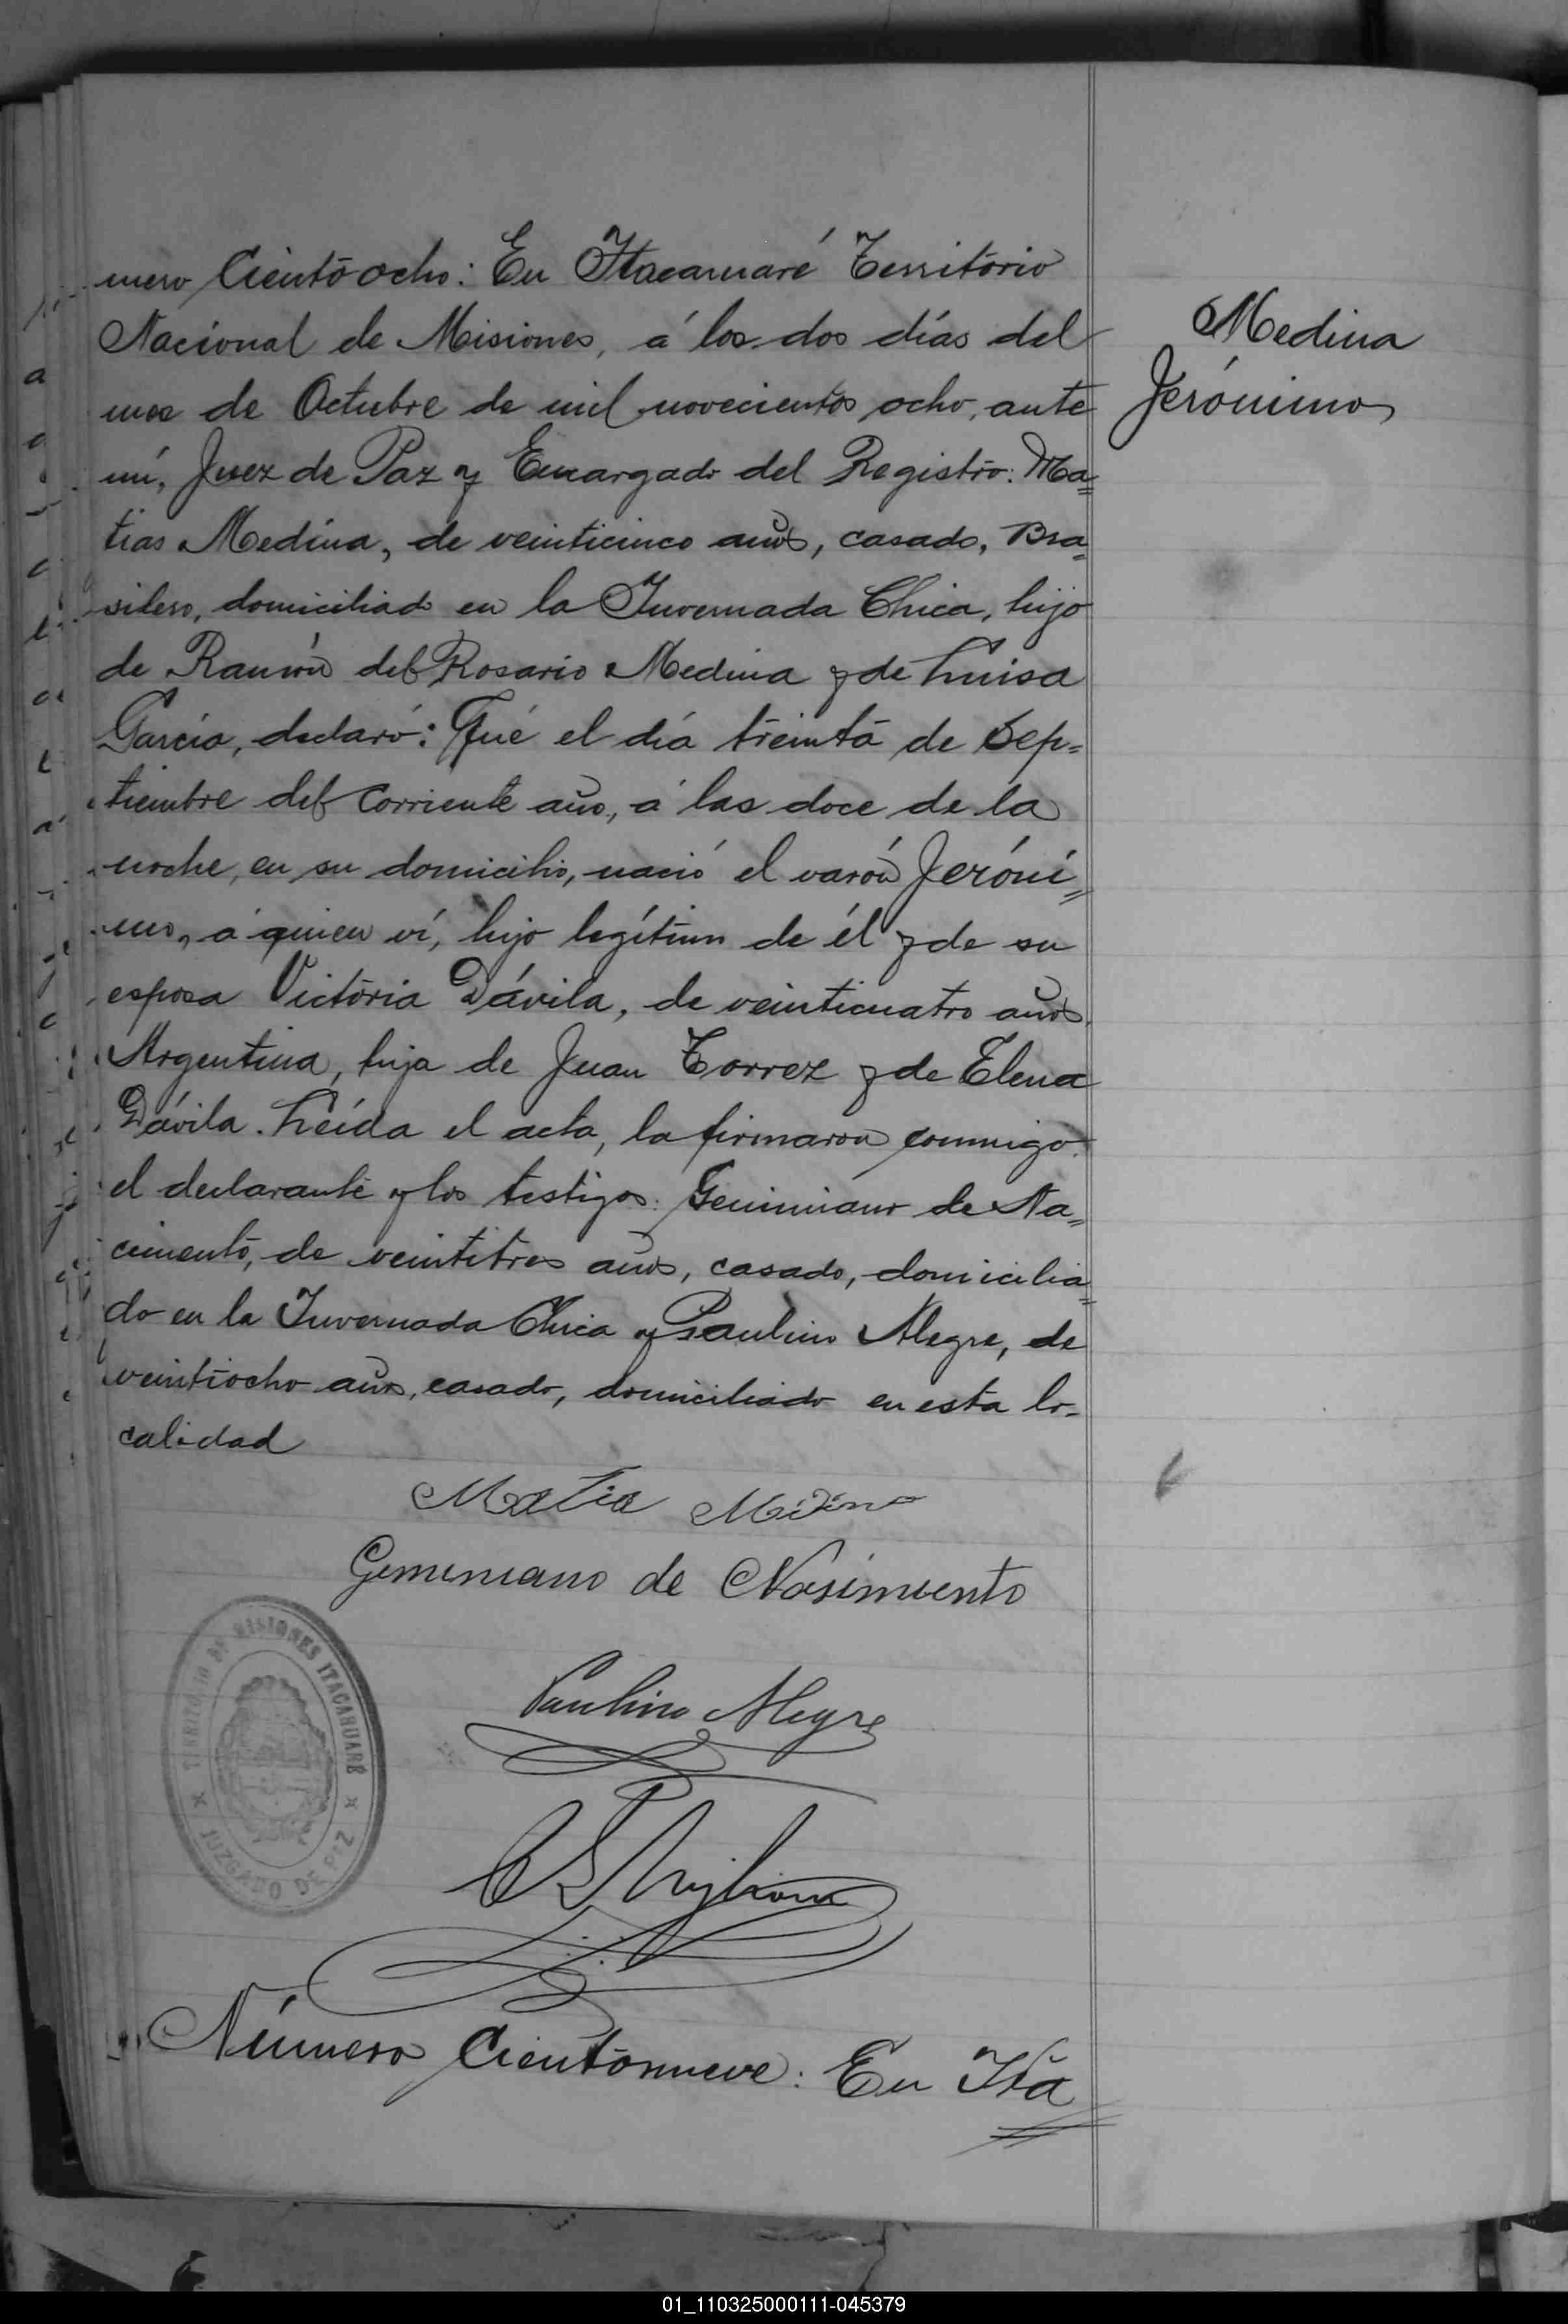 mero Ciento ocho: En Itacaruaré Territorio
Nacional de Misiones, á los dos días del
mes de Octubre de mil novecientos ocho, ante
mí, Juez de Paz y Encargado del Registro: Ma=
tias Medina, de veinticinco años, casado, Bra=
silero, domiciliado en la Invernada Chica, hijo
de Ramón del Rosario Medina y de Luisa
García, declaró: Qué el día treinta de Sep=
tiembre del corriente año, á las doce de la
noche, en su domicilio, nació el varón Jeróni=
mo, á quien ví, hijo legítimo de él y de su
esposa Victoria Dávila, de veinticuatro años,
Argentina, hija de Juan Torrez y de Elena
Dávila. Leída el acta, la firmaron conmigo
el declarante y los testigos: Geminiano de Na=
cimento, de veintitres años, casado, domicilia=
do en la Invernada Chica y Paulino Alegre, de
veintiocho años, casado, domiciliado en esta lo-
calidad
Medina
Jerónimo
Matia Medina
Geminiano de Nasimiento
Paulino Alegre
TERRITORIO DE MISIONES ITACARUARÉ
JUZGADO DE PAZ
Número Ciento nueve: En Ita
01_110325000111-045379